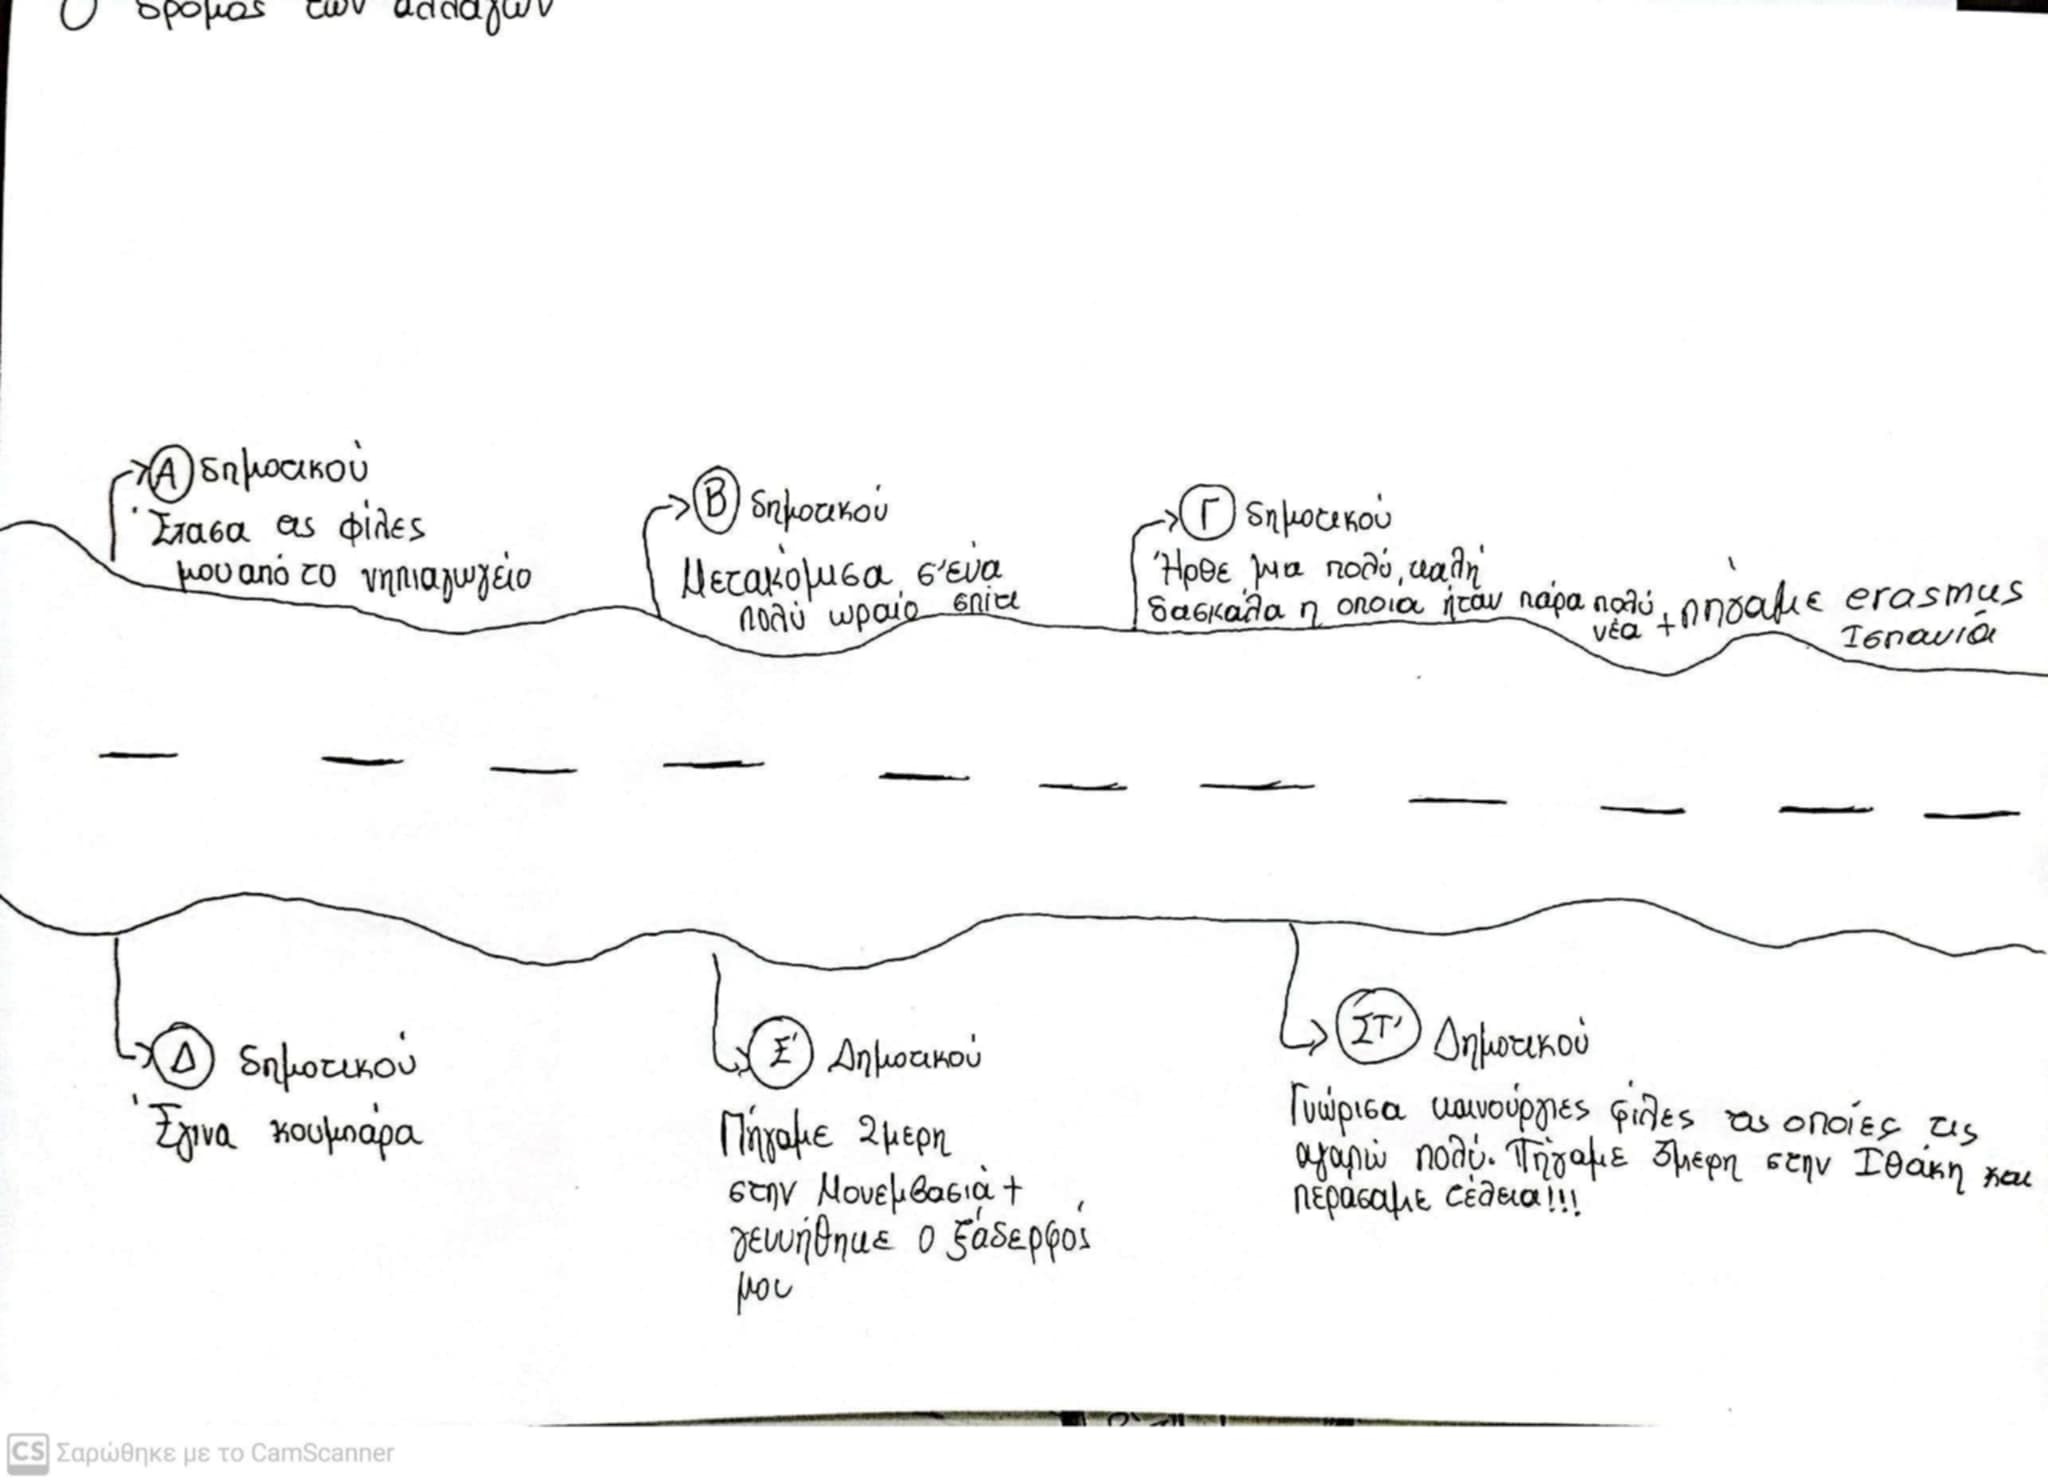 Ο δρόμος των αλλαγών
Α δημοτικού
Έχασα τις φίλες
μου από το νηπιαγωγείο
Β δημοτικού
Μετακόμισα σ'ένα
πολύ ωραίο σπίτι
Γ δημοτικού
Ήρθε μια πολύ καλή
δασκάλα η οποια ήταν πάρα πολύ
νέα + πήγαμε erasmus
Ισπανία
Δ δημοτικού
Έγινα κουμπάρα
Ε' Δημοτικού
Πήγαμε 2μερη
στην Μονεμβασιά +
γεννήθηκε ο ξάδερφός
μου
ΣΤ' Δημοτικού
Γνώρισα καινούργιες φίλες τις οποίες τις
αγαπώ πολύ. Πήγαμε 3μερη στην Ιθάκη και
περάσαμε τέλεια!!!
CS Σαρώθηκε με το CamScanner